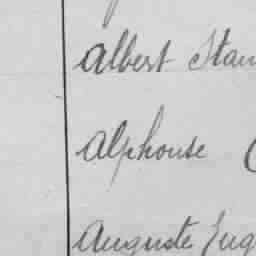 Albert Stan
Alphonse (
Auguste Eug